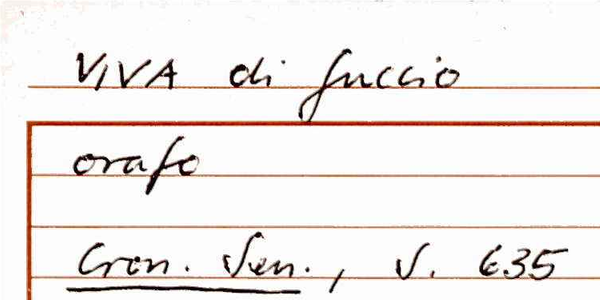 VIVA di Guccio
orafo
Cron. Sen., v. 635